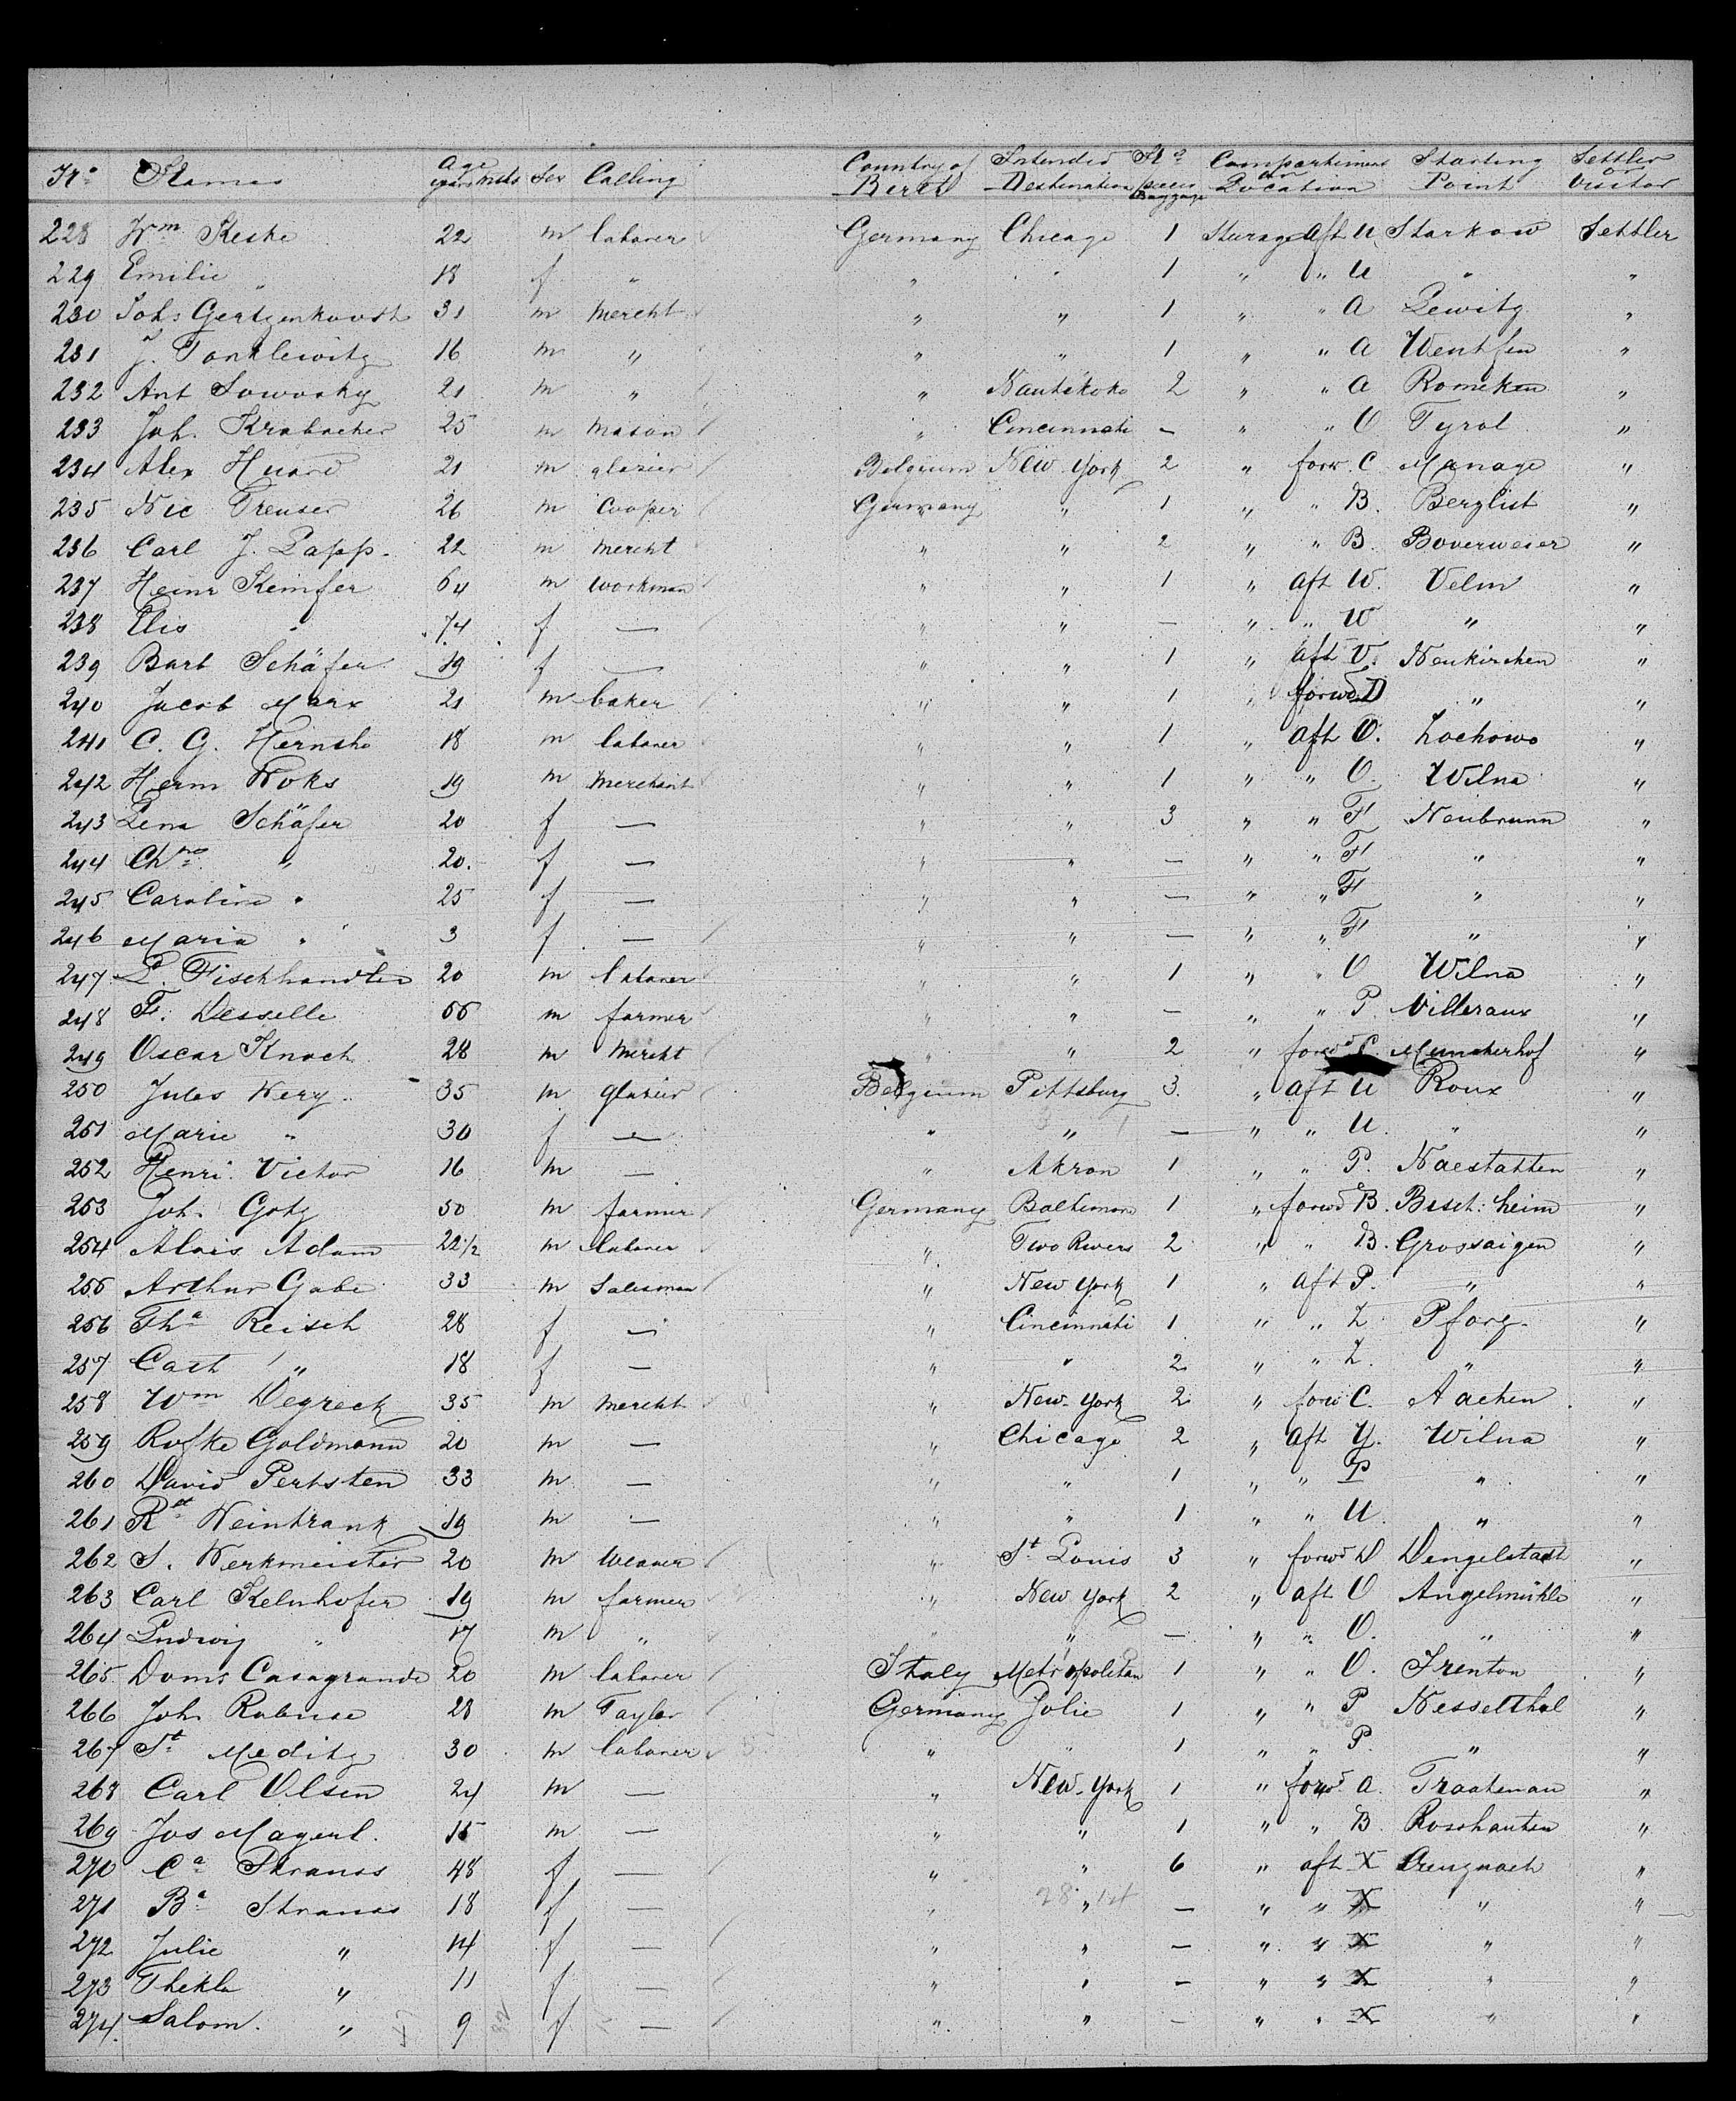 No. Names Age years Mths Sex Calling Country of Birth Intended Destination No. pieces Baggage Compartiment or Location Starting Point Settler or Visitor
228 Wm Keske 22 m laborer Germany Chicago 1 Sturage aft U Starkow Settler
229 Emilie " 18 f " " " 1 " " U " "
230 Joh: 31 m Mercht " " 1 " " a Lewitz "
231 J. Tonklewitz 16 m " " " 1 " " a "
232 Ant Sowosky 21 m " " Nantikoko 2 " " a Romeiken "
233 Joh. Krabacher 25 m Mason " Cincinnati — " " O Tyrol "
234 Alex Huard 21 m glazier Belgium New York 2 " forw. C Manage "
235 Nic Treuser 26 m Cooper Germany " 1 " " B. Berglist "
236 Carl J. Papp. 22 m Mercht " " 2 " " B. Boverweser "
237 Heinr Kemfer 64 m workman " " 1 " aft W. Velm "
238 Elis " 74 f — " " — " " W " "
239 Barb Schäfer 19 f — " " 1 " aft V. Neukirchen "
240 Jacob Marx 21 m baker " " 1 " forwd D " "
241 C. G. Hernsho 18 m laborer " " 1 " aft O. Lochowo "
242 Herm Woks 19 m Merchant " " 1 " " O. Wilna "
243 Lena Schäfer 20 f — " " 3 " " F Neubrunn "
244 Chne " 20. f — " " — " " F " "
245 Caroline " 25 f — " " — " " F " "
246 Maria " 3 f — " " — " " F " "
247 L. Fischhandler 20 m laborer " " 1 " " O Wilna "
248 F. Desselle 56 m farmer " " — " " P. Villeraux "
249 Oscar Knoch 28 m Mercht " " 2 " forwd C. Munsterhof "
250 Jules Wery 35 m glazier Belgium Pittsburg 3. " aft U Roux "
251 Marie " 30 f — " " — " " U. " "
252 Henri Victor 16 m — " Akron 1 " " P. Naestatten "
253 Joh. Gotz 50 m farmer Germany Baltimore 1 " forwd B. Bisch: heim "
254 Alois Adam 22 1/2 m laborer " Two Rivers 2 " " B. Grossaigen "
255 Arthur Gabe 33 m Salesman " New York 1 " aft P. " "
256 Tha Reisch 28 f — " Cincinnati 1 " " Z Pforg. "
257 Cath " 18 f — " " 2 " " Z. " "
258 Wm Degreck 35 m mercht " New-York 2 " forw C. Aachen "
259 Rofke Goldmann 20 m — " Chicago 2 " aft Y. Wilna "
260 David Perksten 33 m — " " 1 " " P " "
261 Rt Weintrank 19 m — " " 1 " " U. " "
262 S. Werkmeister 20 m Weaver " St Louis 3 " forwd D Dingelstadt "
263 Carl Kelnhofer 19 m farmer " New York 2 " aft O Angelmühle "
264 Ludwig " 17 m " " " — " " O. " "
265. Doms Casagrande 20 m laborer Italy Metropolitan 1 " " O. Trenton "
266 Joh. Rabuse 28 m Taylor Germany Jolie 1 " " P Nesselthal "
267 St Meditz 30 m laborer " " 1 " " P. " "
268 Carl Olsen 24 m — " New-York 1 " forwd a. Traateman "
269 Jos Mayerl. 15 m — " " 1 " " B. Rosshauten "
270 Ca Strauss 48 f — " " 6 " aft X "
28 1st
271 Ba Strauss 18 f — " " — " " X " "
272 Julie " 14 f — " " — " " X " "
273 Thekla " 11 f — " " — " " X " "
274. Salom. " 9 f — " " — " " X " "